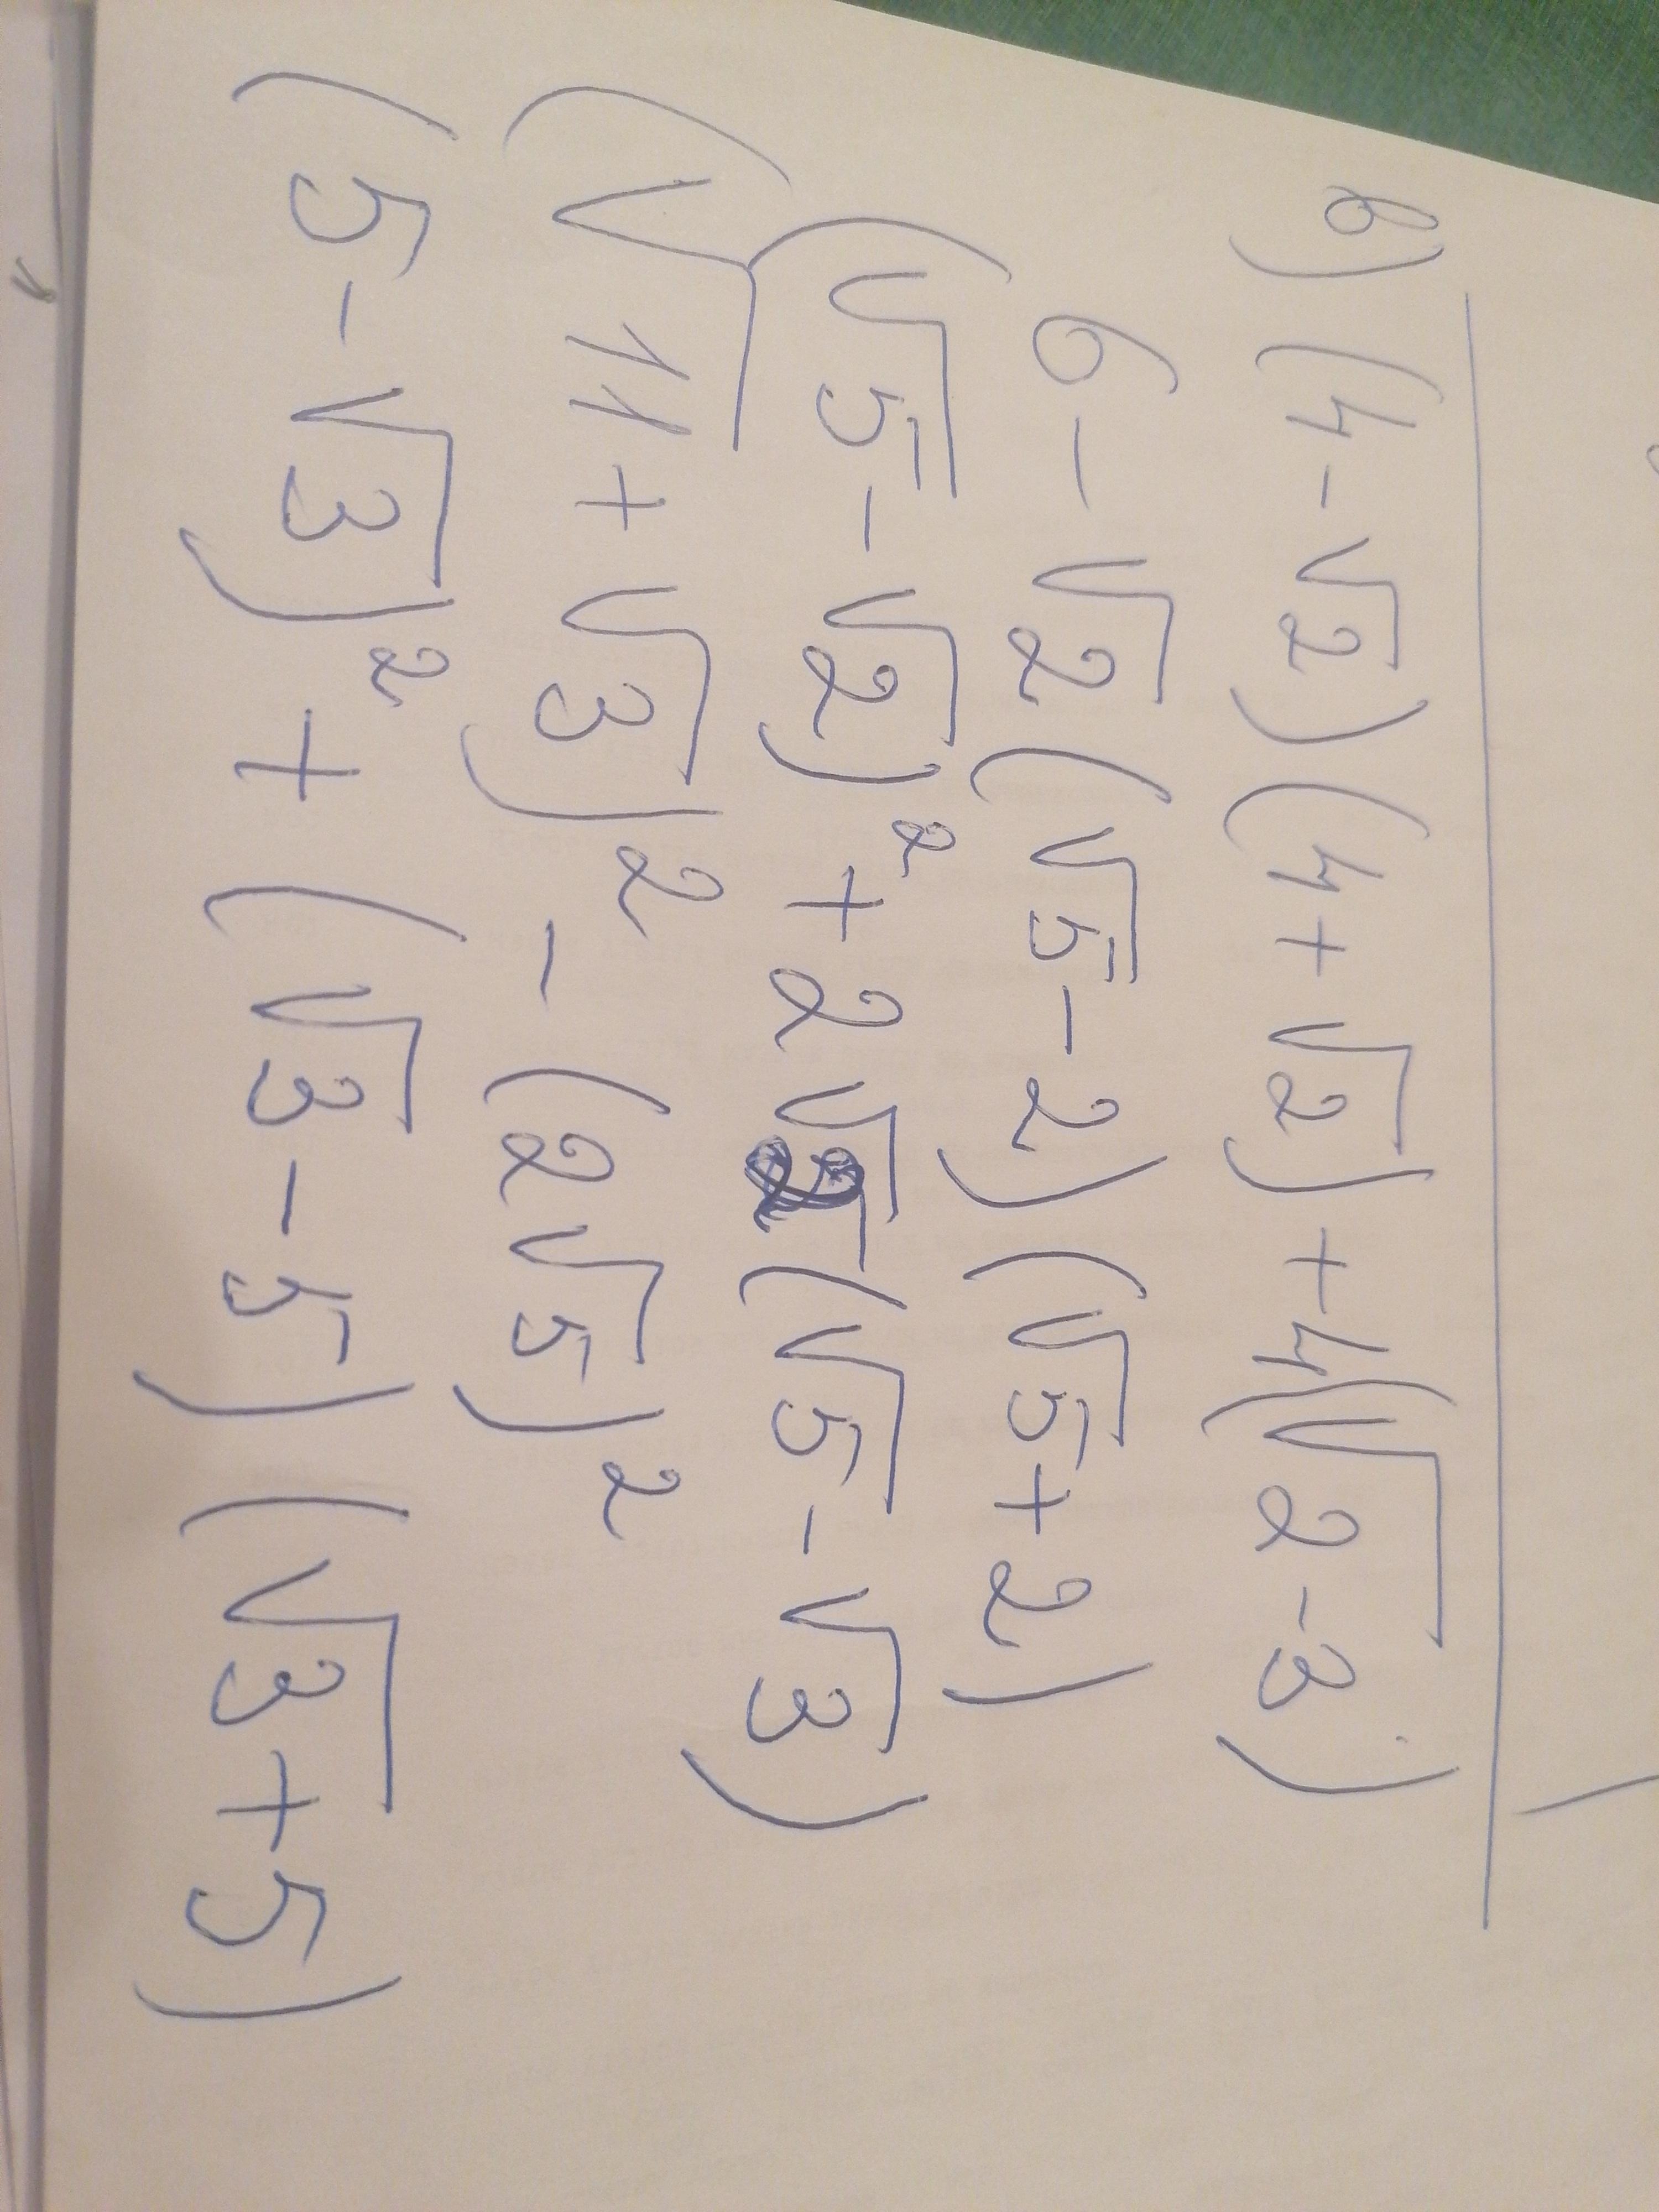 в) (4-√2)(4+√2)+4(√2-3)
6-√2(√5-2)(√5+2)
(√5-√2)²+2√2(√5-√3)
(√11+√3)²-(2√5)²
(5-√3)²+(√3-5)(√3+5)